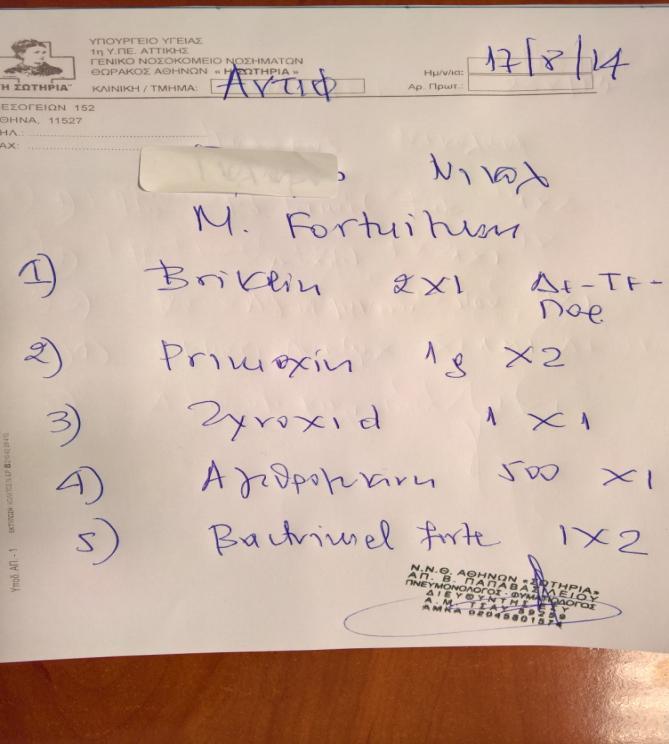 ΥΠΟΥΡΓΕΙΟ ΥΓΕΙΑΣ
1η Υ.ΠΕ. ΑΤΤΙΚΗΣ
ΓΕΝΙΚΟ ΝΟΣΟΚΟΜΕΙΟ ΝΟΣΗΜΑΤΩΝ
ΘΩΡΑΚΟΣ ΑΘΗΝΩΝ «Η ΣΩΤΗΡΙΑ»
"Η ΣΩΤΗΡΙΑ" ΚΛΙΝΙΚΗ / ΤΜΗΜΑ: Αντιφ
Ημ/νία: 17/8/14
Αρ. Πρωτ.:
ΕΣΟΓΕΙΩΝ 152
ΘΗΝΑ, 11527
ΗΛ.:
ΑΧ:
M. Fortuitum
1) Briklin 2X1 Δε-Τε-
Παρ
2) Primaxin 1g X2
3) Zyvoxid 1 X1
4) Αζιθρομυκινη 500 X1
5) Bactrimel forte 1X2
Ν.Ν.Θ. ΑΘΗΝΩΝ «ΣΩΤΗΡΙΑ»
ΑΠ. Β. ΠΑΠΑΒΑΣΙΛΕΙΟΥ
ΠΝΕΥΜΟΝΟΛΟΓΟΣ-ΦΥΜΑΤΙΟΛΟΓΟΣ
ΔΙΕΥΘΥΝΤΗΣ ΕΣΥ
Υποδ. ΑΠ - 1